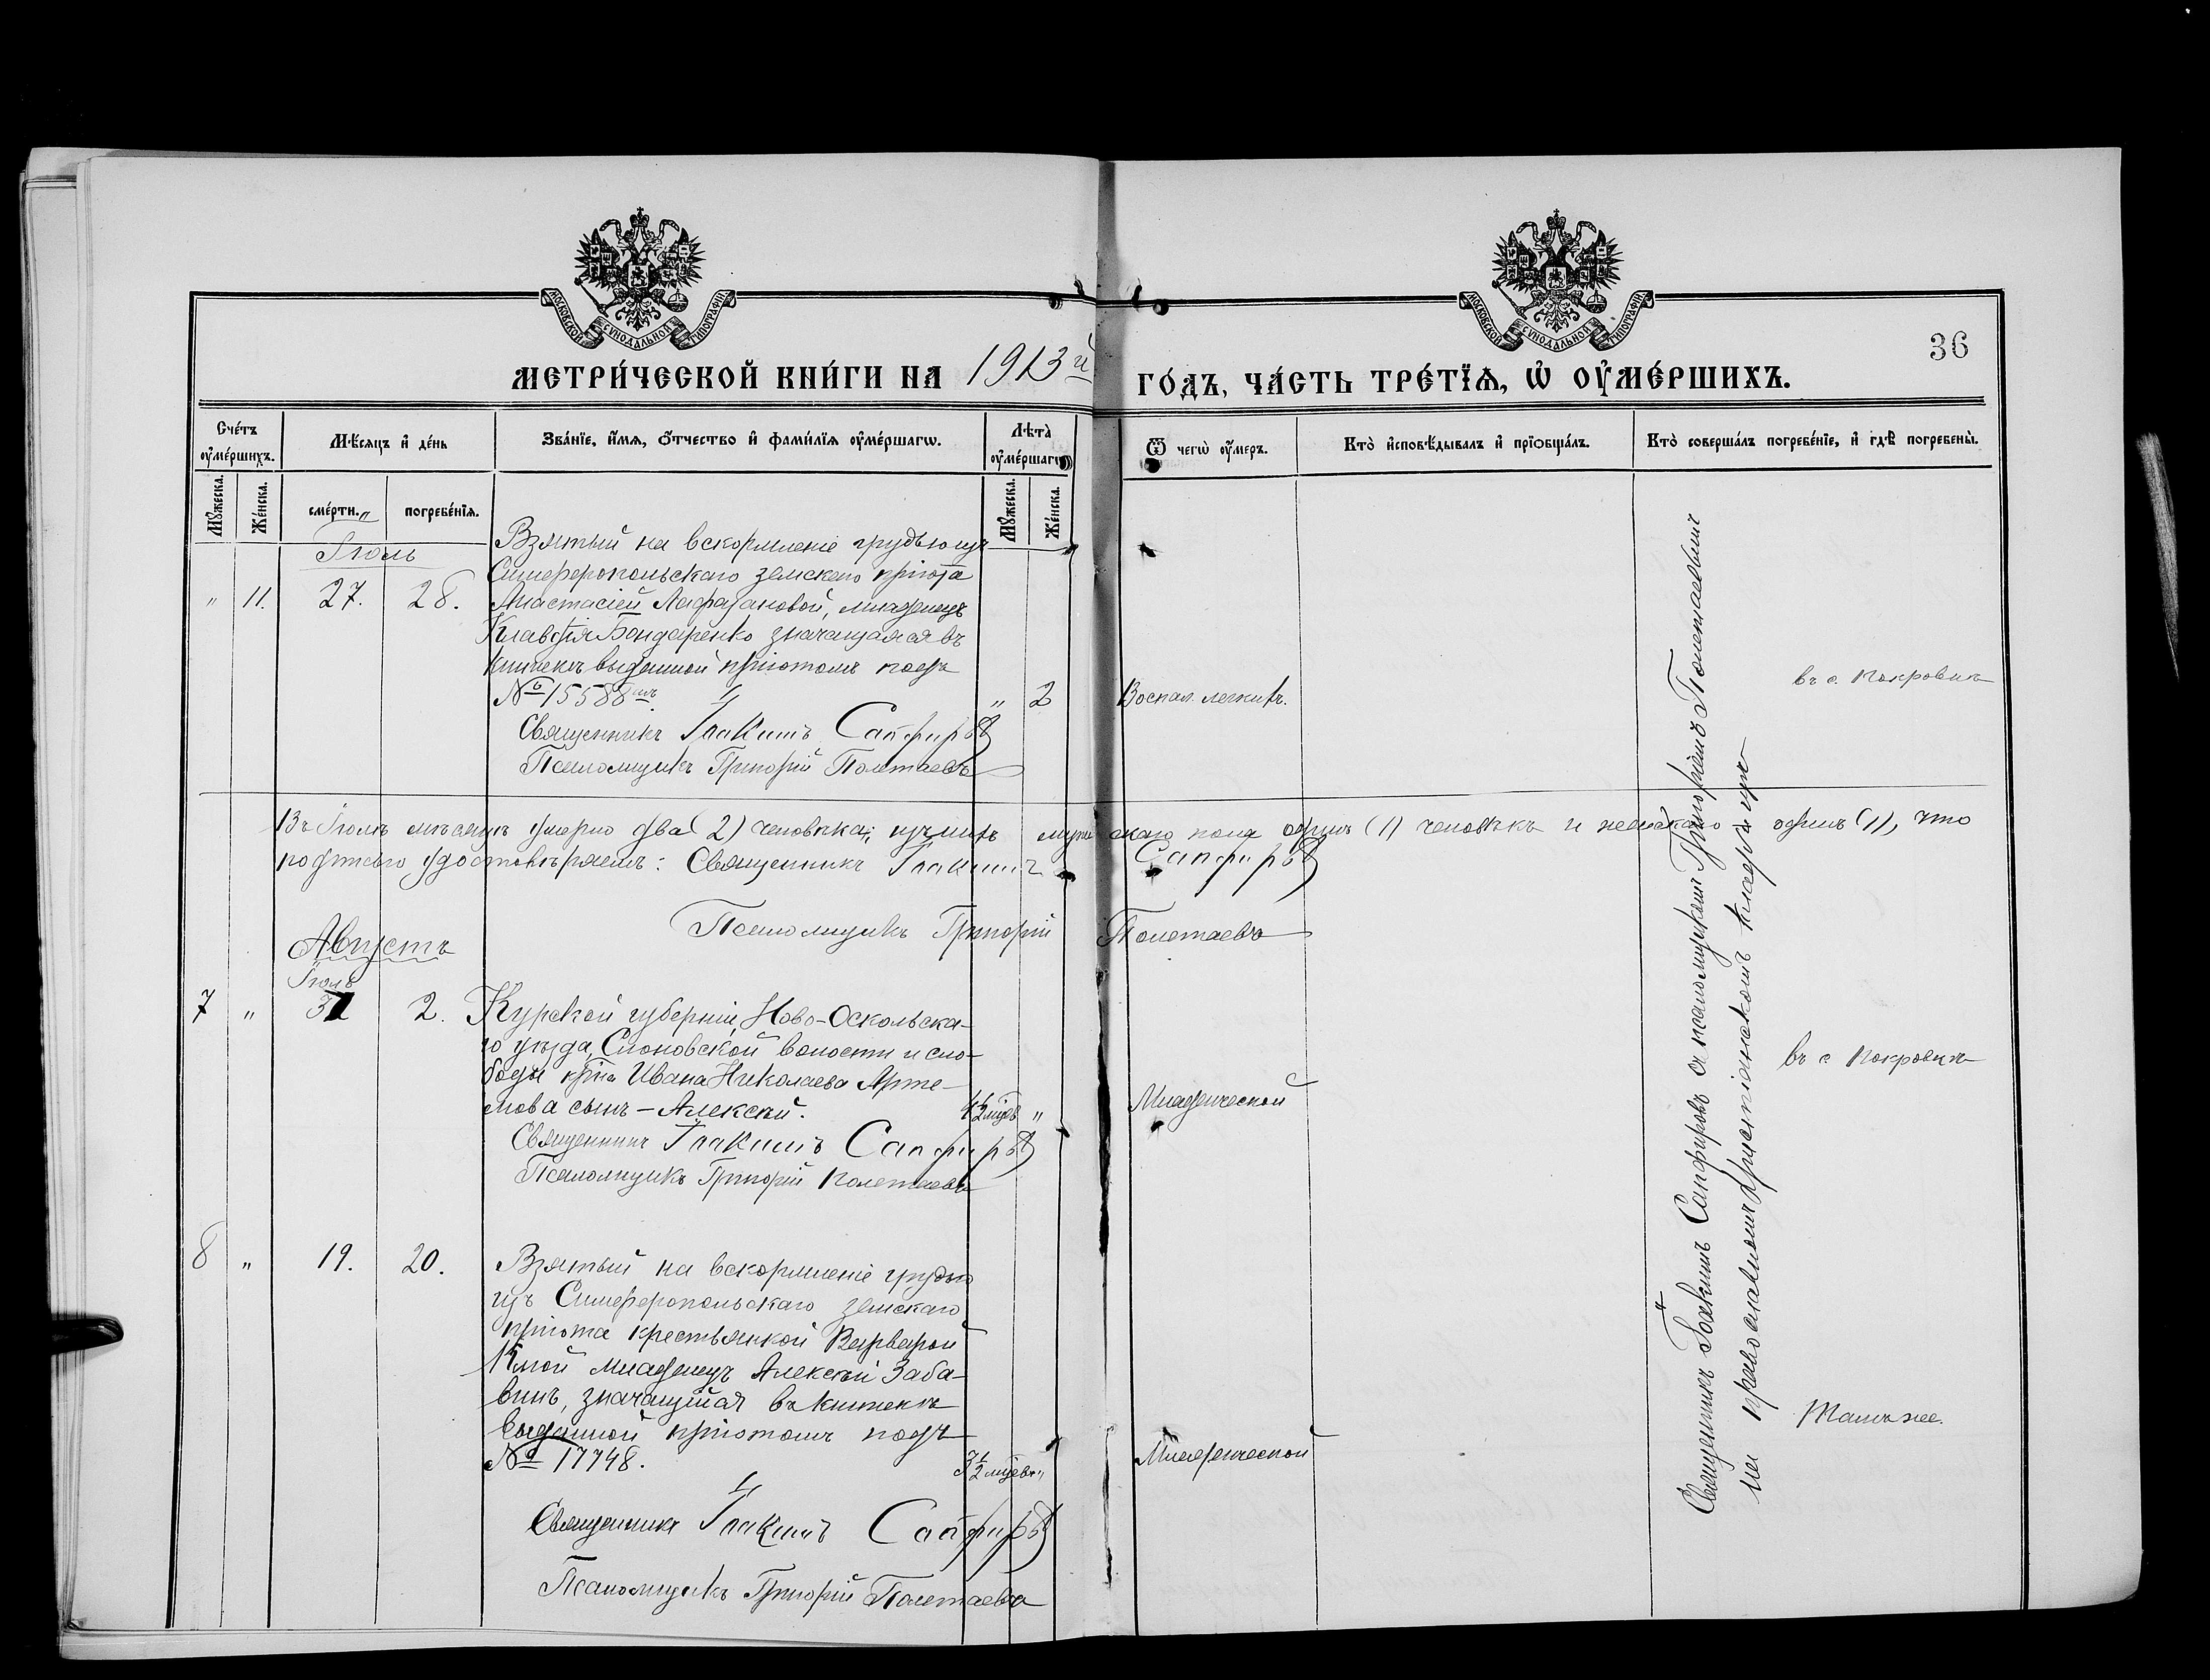 МОСКОВСКОЙ СѴНОДАЛЬНОЙ ТИПОГРАФІИ
МОСКОВСКОЙ СѴНОДАЛЬНОЙ ТИПОГРАФІИ
36
МЕТРИ́ЧЕСКОЙ КНИ́ГИ НА 1913й ГО́ДЪ, ЧА́СТЬ ТРЕ́ТІѦ, Ѡ҆ ОУ҆МЕ́РШИХЪ.
Сче́тъ оу҆ме́ршихъ.
Мѣ́сяцъ и҆ де́нь
Зва́нїе, и҆́мя, ѻ҆́тчество и҆ фами́лїя оу҆ме́ршагѡ.
Лѣ́та оу҆ме́ршагѡ
Ѿ чегѡ̀ оу҆́меръ.
Кто̀ и҆сповѣ́дывалъ и҆ прїѻбща́лъ.
Кто̀ соверша́лъ погребе́нїе, и҆ гдѣ̀ погребены̀.
Мꙋ́жеска.
Же́нска.
сме́рти.
погребе́нїя.
Мꙋ́жеска.
Же́нска.
Іюль
" 11. 27. 28.
Взятый на вскормленіе грудью изъ
Симферопольскаго земскаго пріюта
Анастасіей Лафазановой, младенецъ
Клавдія Бондаренко значащаяся въ
книжкѣ выданной пріютомъ подъ
№ 15588мъ. " 2 Воспал. легкихъ. въ с. Покровкѣ
Священникъ Іоакимъ Сапфировъ
Псаломщикъ Григорій Полетаевъ
Въ Іюлѣ мѣсяцѣ умерло два (2) человѣка; изъ нихъ мужескаго пола одинъ (1) человѣкъ и женскаго одинъ (1), что
подписью удостовѣряемъ: Священникъ Іоакимъ Сапфировъ
Псаломщикъ Григорій Полетаевъ
Августъ
Іюль
7 " 31 2. Курской губерніи, Ново-Оскольска-
го уѣзда, Слоновской волости и сло-
боды кр͠на Ивана Николаева Арте- въ с. Покровкѣ
мова сынъ – Алексій. 4½ мѣцев " Младенческой
Священникъ Іоакимъ Сапфировъ
Псаломщикъ Григорій Полетаевъ
8 " 19. 20. Взятый на вскормленіе грудью
изъ Симферопольскаго земскаго
пріюта крестьянкой Варварой
младенецъ Алексѣй Заба-
винъ, значащійся въ книжкѣ
выданной пріютомъ подъ Тамъ же.
№ 17748. 3½ мѣцевъ " Младенческой
Священникъ Іоакимъ Сапфировъ
Псаломщикъ Григорій Полетаевъ
Священникъ Іоакимъ Сапфировъ съ псаломщикомъ Григоріемъ Полетаевымъ
на православномъ христіанскомъ кладбищѣ